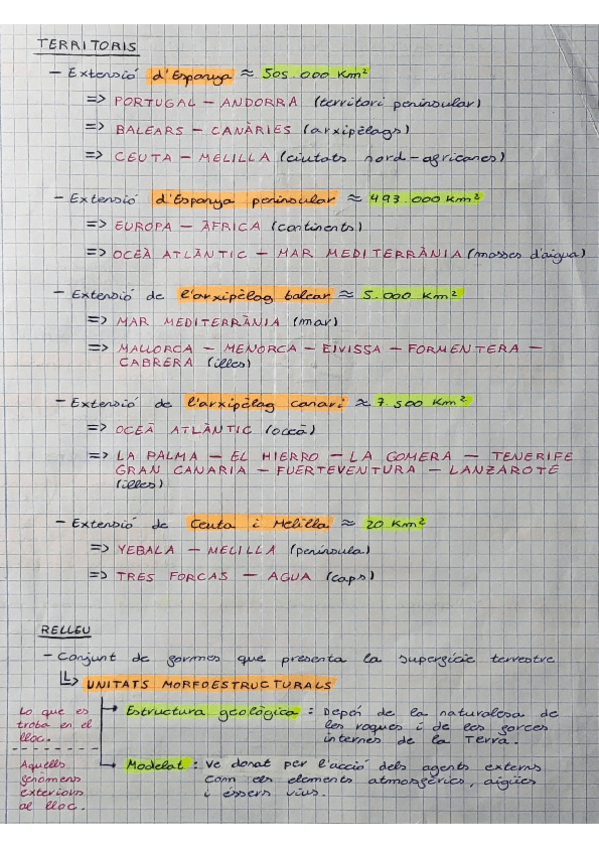 TERRITORIS
- Extensió d'Espanya ≈ 505.000 Km²
=> PORTUGAL - ANDORRA (territori peninsular)
=> BALEARS - CANÀRIES (arxipèlags)
=> CEUTA - MELILLA (ciutats nord-africanes)
- Extensió d'Espanya peninsular ≈ 493.000 Km²
=> EUROPA - ÀFRICA (continents)
=> OCEÀ ATLÀNTIC - MAR MEDITERRÀNIA (masses d'aigua)
- Extensió de l'arxipèlag balear ≈ 5.000 Km²
=> MAR MEDITERRÀNIA (mar)
=> MALLORCA - MENORCA - EIVISSA - FORMENTERA -
CABRERA (illes)
- Extensió de l'arxipèlag canari ≈ 7.500 Km²
=> OCEÀ ATLÀNTIC (oceà)
=> LA PALMA - EL HIERRO - LA GOMERA - TENERIFE
GRAN CANARIA - FUERTEVENTURA - LANZAROTE
(illes)
- Extensió de Ceuta i Melilla ≈ 20 Km²
=> YEBALA - MELILLA (península)
=> TRES FORCAS - AGUA (caps)
RELLEU
- Conjunt de formes que presenta la superfície terrestre
UNITATS MORFOESTRUCTURALS
Lo que es
troba en el
lloc.
Estructura geològica : Depén de la naturalesa de
les roques i de les forces
internes de la Terra.
Aquells
fenòmens
exteriors
al lloc.
Modelat : Ve donat per l'acció dels agents externs
com els elements atmosfèrics, aigües
i éssers vius.